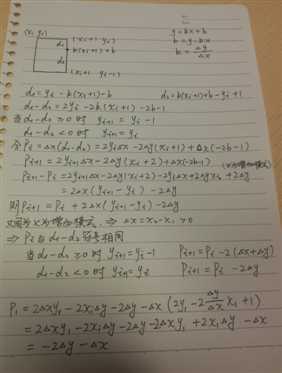 (xi yi)
(xi+1 yi)
y=kx+b
d1
k(xi+1)+b
b=y-kx
d2
k=Δy/Δx
(xi+1 yi-1)
d1=yi-k(xi+1)-b d2=k(xi+1)+b-yi+1
d1-d2=2yi-2k(xi+1)-2b-1
当d1-d2≥0时 yi+1=yi-1
d1-d2<0时 yi+1=yi
令Pi=Δx(d1-d2)=2yiΔx-2Δy(xi+1)+Δx(-2b-1)
Pi+1=2yi+1Δx-2Δy(xi+2)+Δx(-2b-1)
Pi+1-Pi=2yi+1Δx-2Δy(xi+2)-2yiΔx+2Δyxi+2Δy
=2Δx(yi+1-yi)-2Δy
则Pi+1=Pi+2Δx(yi+1-yi)-2Δy
又因为x为增加模式 ⇒ Δx=x2-x1>0
⇒Pi与d1-d2符号相同
当d1-d2≥0时 yi+1=yi-1 Pi+1=Pi-2(Δx+Δy)
d1-d2<0时 yi+1=yi Pi+1=Pi-2Δy
P1=2Δxy1-2x1Δy-2Δy-Δx(2y1-2Δy/Δx x1+1)
=2Δxy1-2x1Δy-2Δy-2Δxy1+2x1Δy-Δx
=-2Δy-Δx